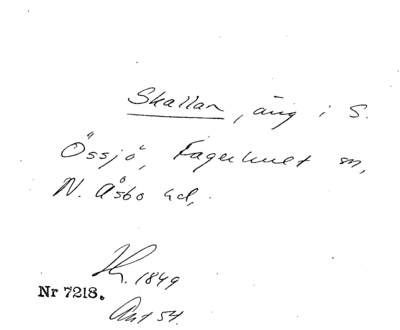 Skallan, äng i S.
Össjö, Fagerhult sn,
N. Åsbo hd,
1849
Nr 7218.
Akt 54.